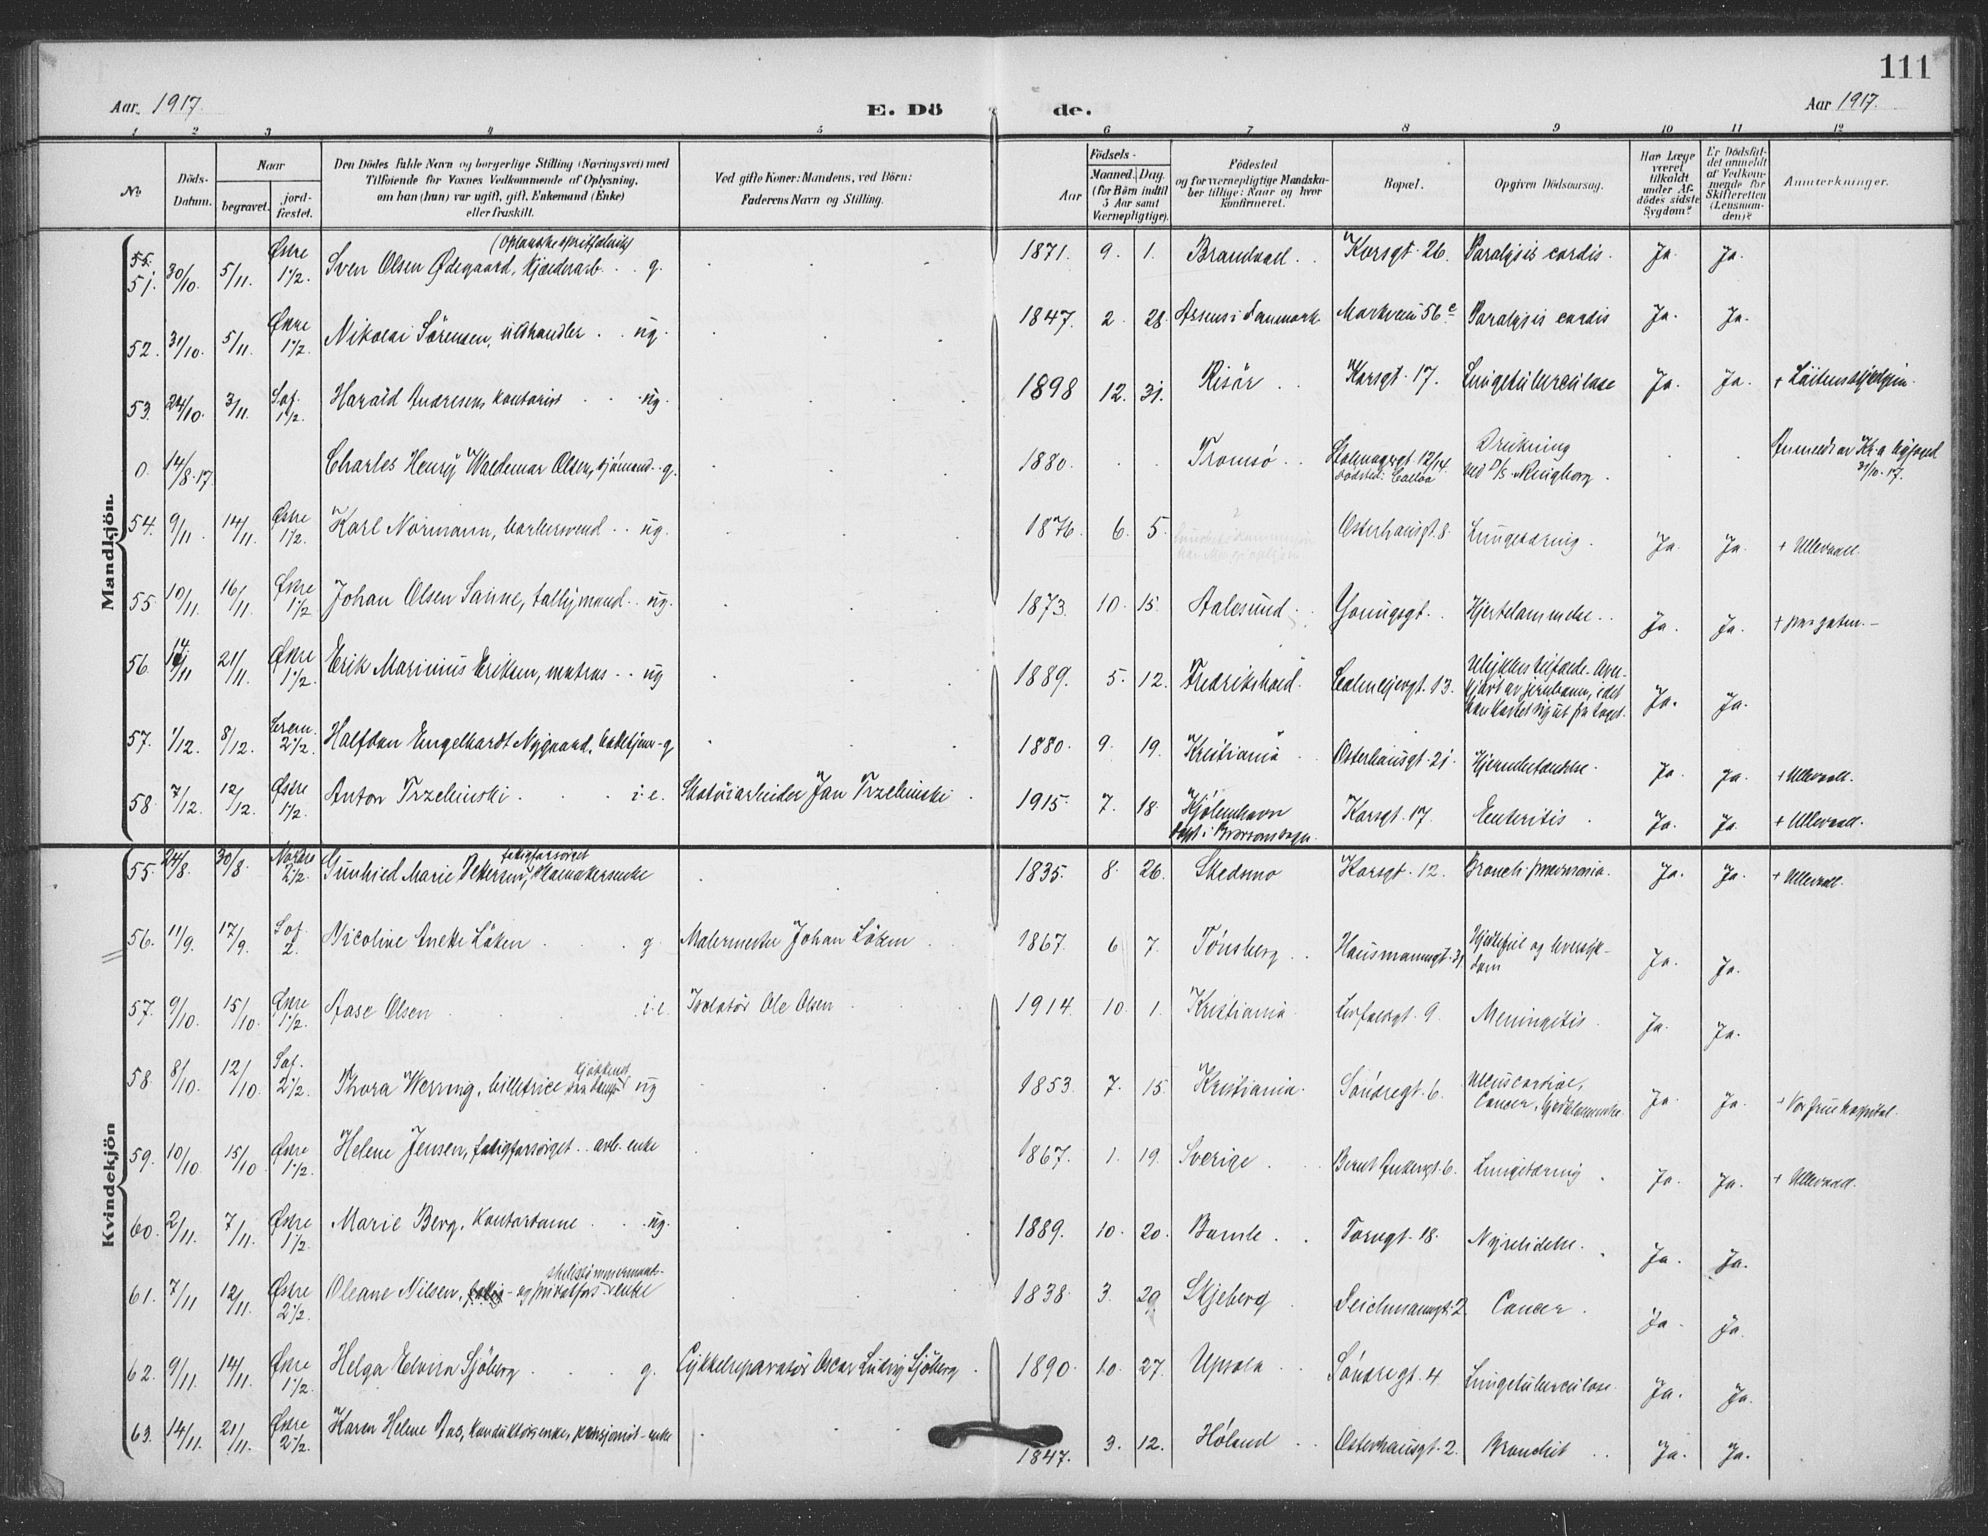 111
Aar 1917.
E. Dö de.
Aar 1917.
1 2 3 4 5 6 7 8 9 10 11 12
No
Döds-Datum.
Naar
begravet.
jord-fæstet.
Den Dödes fulde Navn og borgerlige Stilling (Næringsvei) med
Tilföiende for Voxnes Vedkommende af Oplysning,
om han (hun) var ugift, gift, Enkemand (Enke)
eller fraskilt.
Ved gifte Koner: Mandens, ved Börn:
Faderens Navn og Stilling.
Födsels-
Aar
Maaned. Dag.
(for Börn indtil
5 Aar samt
Værnepligtige).
Födested
og for værnepligtige Mandska-
ber tillige: Naar og hvor
konfirmeret.
Bopæl.
Opgiven Dödsaarsag.
Har Læge
været
tilkaldt
under Af-
dödes sidste
Sygdom?
Er Dödsfal-
det anmeldt
af Vedkom-
mende for
Skifteretten
(Lensman-
den)?
Anmærkninger.
Mandkjön.
55. 51. 30/10. 5/11. Østre 1 1/2. Sven Olsen Ødegaard, kjælderarb. g. 1871. 9. 1. Brandvad Korsgt. 26. Paralysis cordis. Ja. Ja.
52. 31/10. 5/11. Østre 1 1/2. Nikolai Sørensen, vildthandler ug. 1847. 2. 28. Assens i Danmark Markveien 56 c Paralysis cordis Ja. Ja.
53. 24/10. 3/11. Sof. 1 1/2. Harald Andresen, kontorist ug. 1898 12. 31. Risör Korsgt. 17. Lungetuberculose Ja. Ja.
0 14/8.17. Charles Henry Waldemar Olsen, sjömand g. 1880. Tromsö 12/14. Drukning ved D/S Ringborg 31/10.17.
54. 9/11. 14/11. Østre 1 1/2. Karl Normann, barbersvend ug. 1876 6. 5. Osterhausgt. 8. Lungetæring. Ja. Ja. + Ullevaal.
55. 10/11. 16/11. Østre 1 1/2 Johan Olsen Sanne, tallymand ug. 1873. 10. 15. Aalesund Youngsgt. Hjertelammelse Ja. Ja.
56. 14/11 21/11. Østre 1 1/2. Erik Marinius Eriksen, matros ug 1889. 5. 12. Fredrikshald. Calmeyergt. 13. Ulykkestilfælde. Over-kjørt av jernbane, idet han kastet sig ut fra toget. Ja. Ja.
57. 1/12. 8/12. Crem. 2 1/2. Halfdan Engelhardt Nygaard, g 1880. 9. 19. Kristiania Osterhausgt. 21. Hjernebetændelse. Ja. Ja. + Ullevaal.
58. 7/12. 12/12. Østre 1 1/2. Anton Trzebinski i. e. Skotöiarbeider Jan Trzebinski 1915. 7. 18. Kjöbenhavn Korsgt. 17. Enteritis Ja. Ja. + Ullevaal.
Kvindekjön
55. 24/8. 30/8. Nordre 2 1/2. Gunhild Marie Pettersen, fattigforsörget 1835. 8. 26. Skedsmo Korsgt. 12. Bronch. pneumonia. Ja. Ja. + Ullevaal.
56. 11/9. 17/9. Sof. 2. Nicoline Anette Löken g. Malermester Johan Löken 1867. 6 7. Tönsberg Hausmannsgt. 31 Hjertefeil og leversyk-dom Ja. Ja.
57. 9/10. 15/10. Østre 1 1/2. Aase Olsen i.e. Isolatör Ole Olsen 1914. 10. 1. Kristiania Lövfaldsgt. 9. Meningitis Ja. Ja.
58. 8/10. 12/10. Sof. 2 1/2. Thora Werring, billetrice ug 1853. 7. 15. Kristiania. Söndregt. 6. Cancer, hjertelammelse. Ja. Ja. + Vor frue hospital.
59. 10/10. 15/10 Østre 1 1/2. Helene Jensen, fattigforsörget arb. enke 1867. 1. 19. Sverige Bernt Ankersgt. 6. Lungetæring Ja. Ja. + Ullevaal.
60. 2/11. 7/11. Østre 1 1/2. Marie Berg, kontordame ug. 1889. 10. 20. Bamle Torvgt. 18. Nyrelidelse. Ja. Ja.
61. 7/11 12/11. Østre 2 1/2. Oleane Nilsen, fattig- og privatfors. skibstömmermands-enke 1838. 3. 29. Skjeberg Deichmannsgt. 2 Cancer. Ja. Ja.
62. 9/11. 14/11. Østre 1 1/2. Helga Elvira Sjöberg g. Cykkelreparatör Oscar Ludvig Sjöberg 1890. 10. 27. Upsala Söndregt. 4. Lungetuberculose. Ja. Ja.
63. 14/11. 21/11. Østre 2 1/2. Karen Helene Aas, konduktörsenke, pensjonist enke 1847. 3. 12. Höland Osterhausgt. 2. Bronchit Ja. Ja.